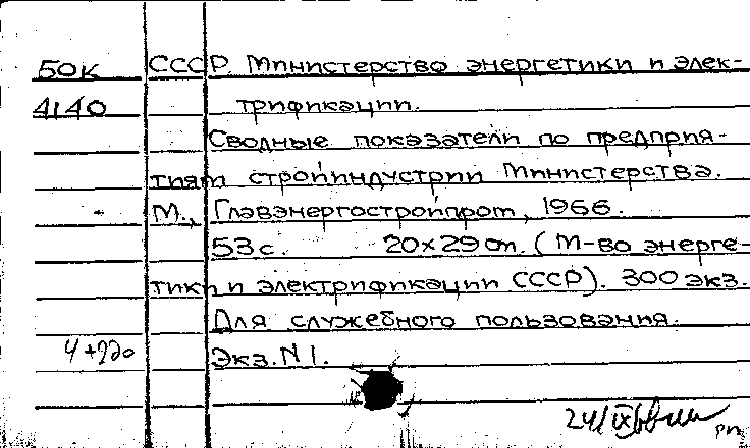 50К СССР. Министерство энергетики и элек-
4140 трификации.
Сводные показатели по предприя-
тиям стройиндустрии Министерства.
М., Главэнергостройпром, 1966.
53 с. 20×29 см. (М-во энерге-
тики и электрификации СССР). 300 экз.
Для служебного пользования.
Экз. N 1.
24/IX66